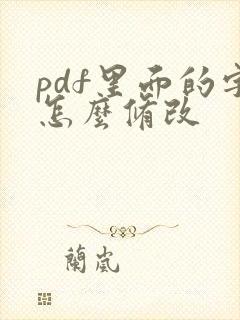 pdf里面的字
怎麼脩改
蘭嵐